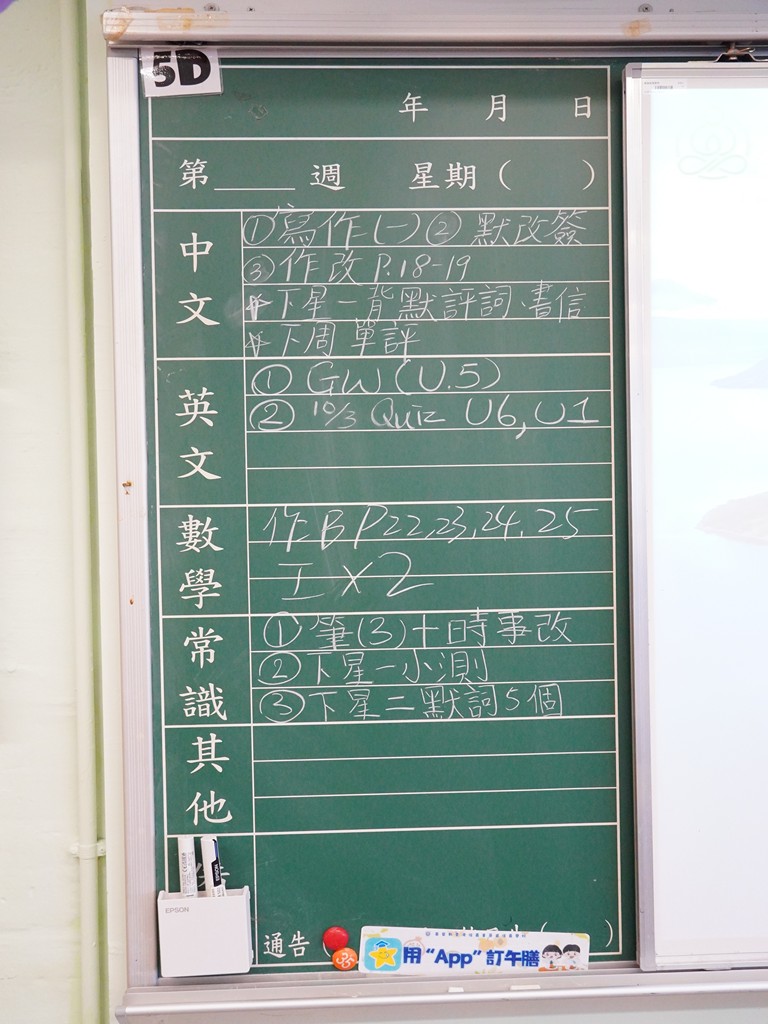 5D
年 月 日
第____週 星期( )
中文
①寫作(一)② 默改簽
③作改 P.18-19
*下星一背默評詞、書信
*下周單評
英文
① GW (U.5)
② 10/3 Quiz U6, U1
數學
作B P22,23,24,25
工 x 2
常識
①筆(3)+時事改
②下星一小測
③下星二默詞5個
其他
EPSON
通告
用"App"訂午膳